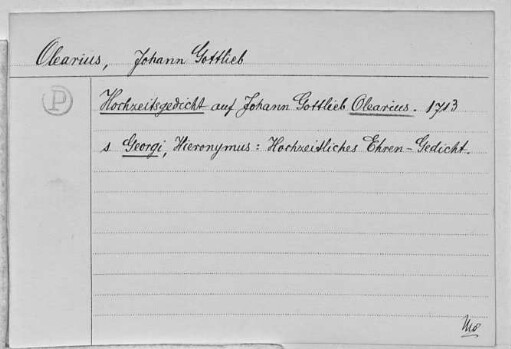 Olearius, Johann Gottlieb
P
Hochzeitsgedicht auf Johann Gottlieb Olearius. 1713
s Georgi, Hieronymus: Hochzeitliches Ehren-Gedicht.